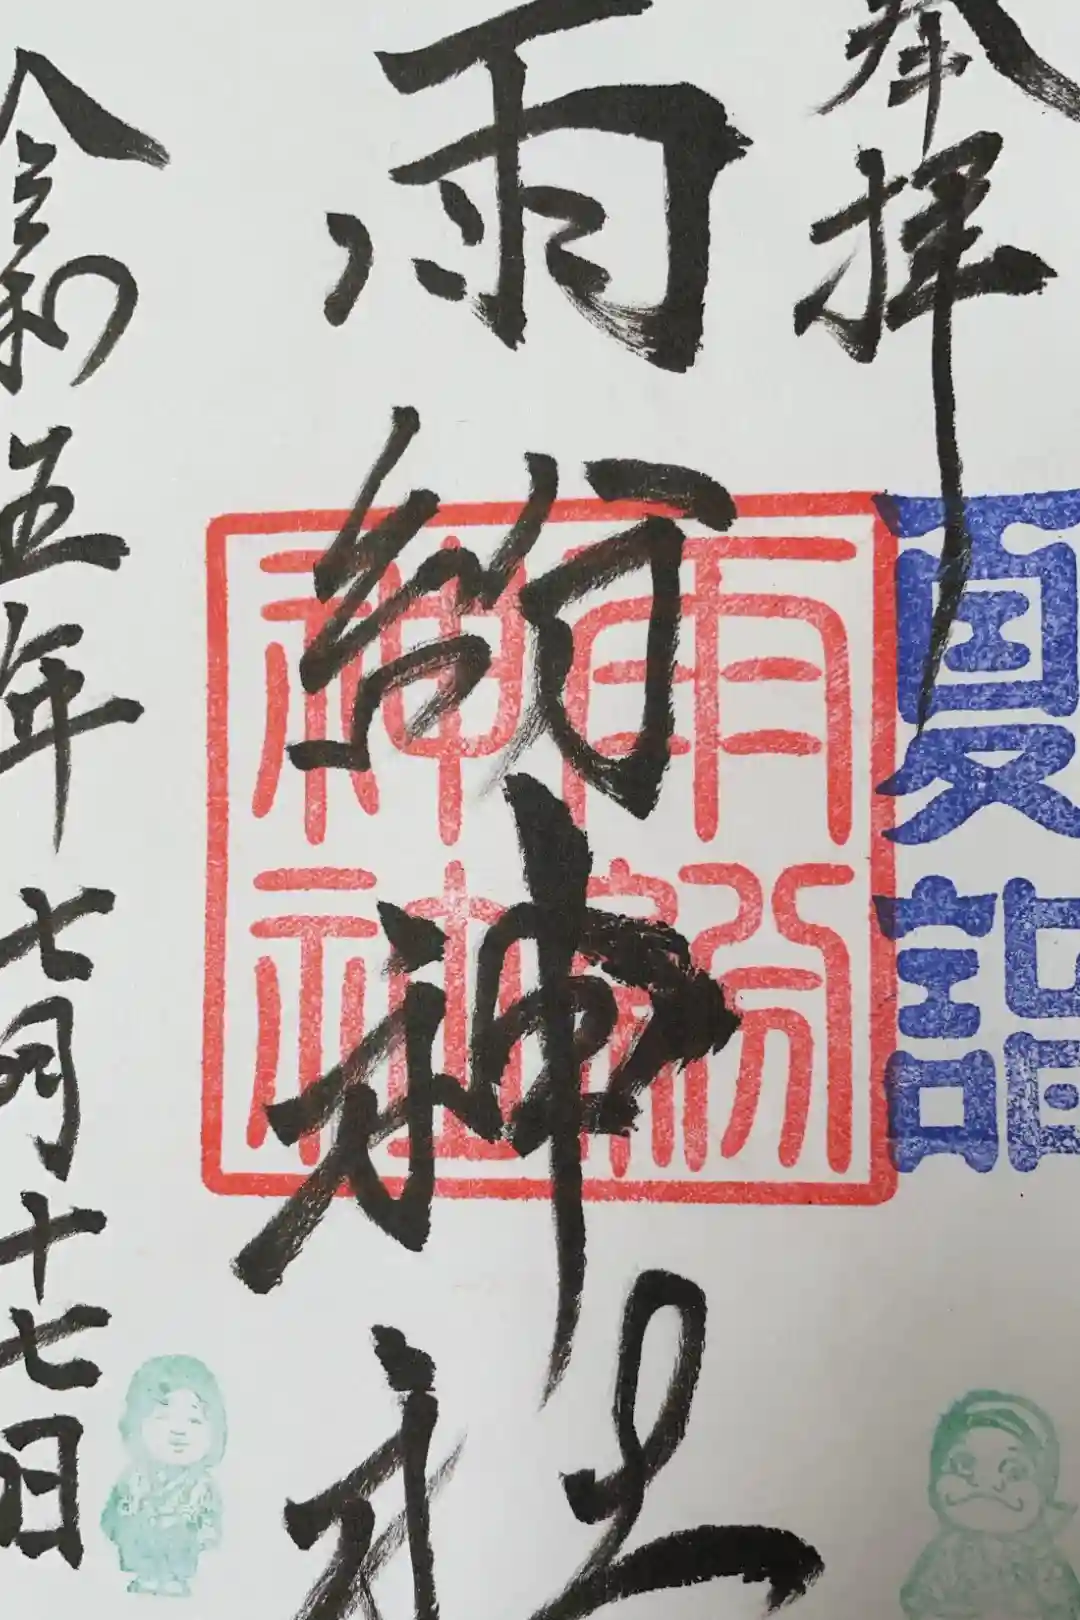 奉拝
夏詣
雨紛神社
雨紛
神社
令和五年七月十七日